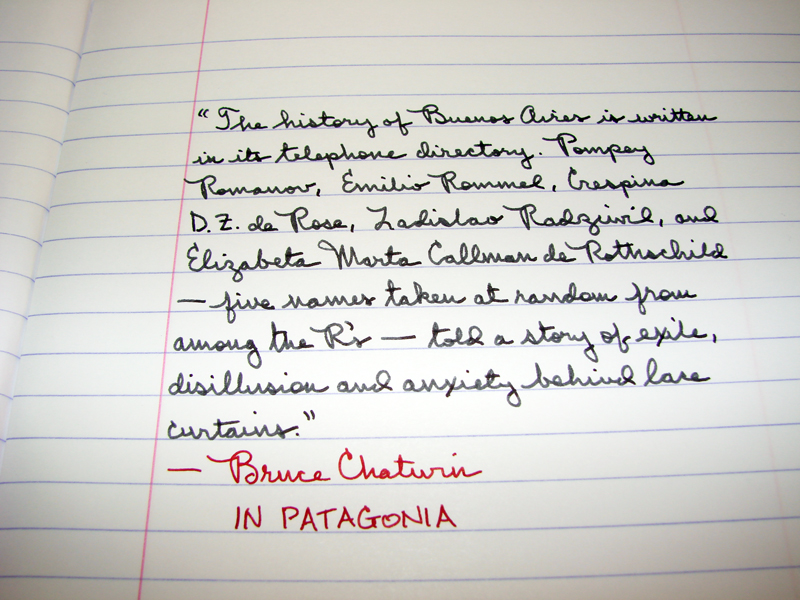 “The history of Buenos Aires is written
in its telephone directory. Pompey
Romanov, Emilio Rommel, Crespina
D.Z. de Rose, Ladislao Radziwil, and
Elizabeta Marta Callman de Rothschild
— five names taken at random from
among the R's — told a story of exile,
disillusion and anxiety behind lace
curtains.”
— Bruce Chatwin
IN PATAGONIA